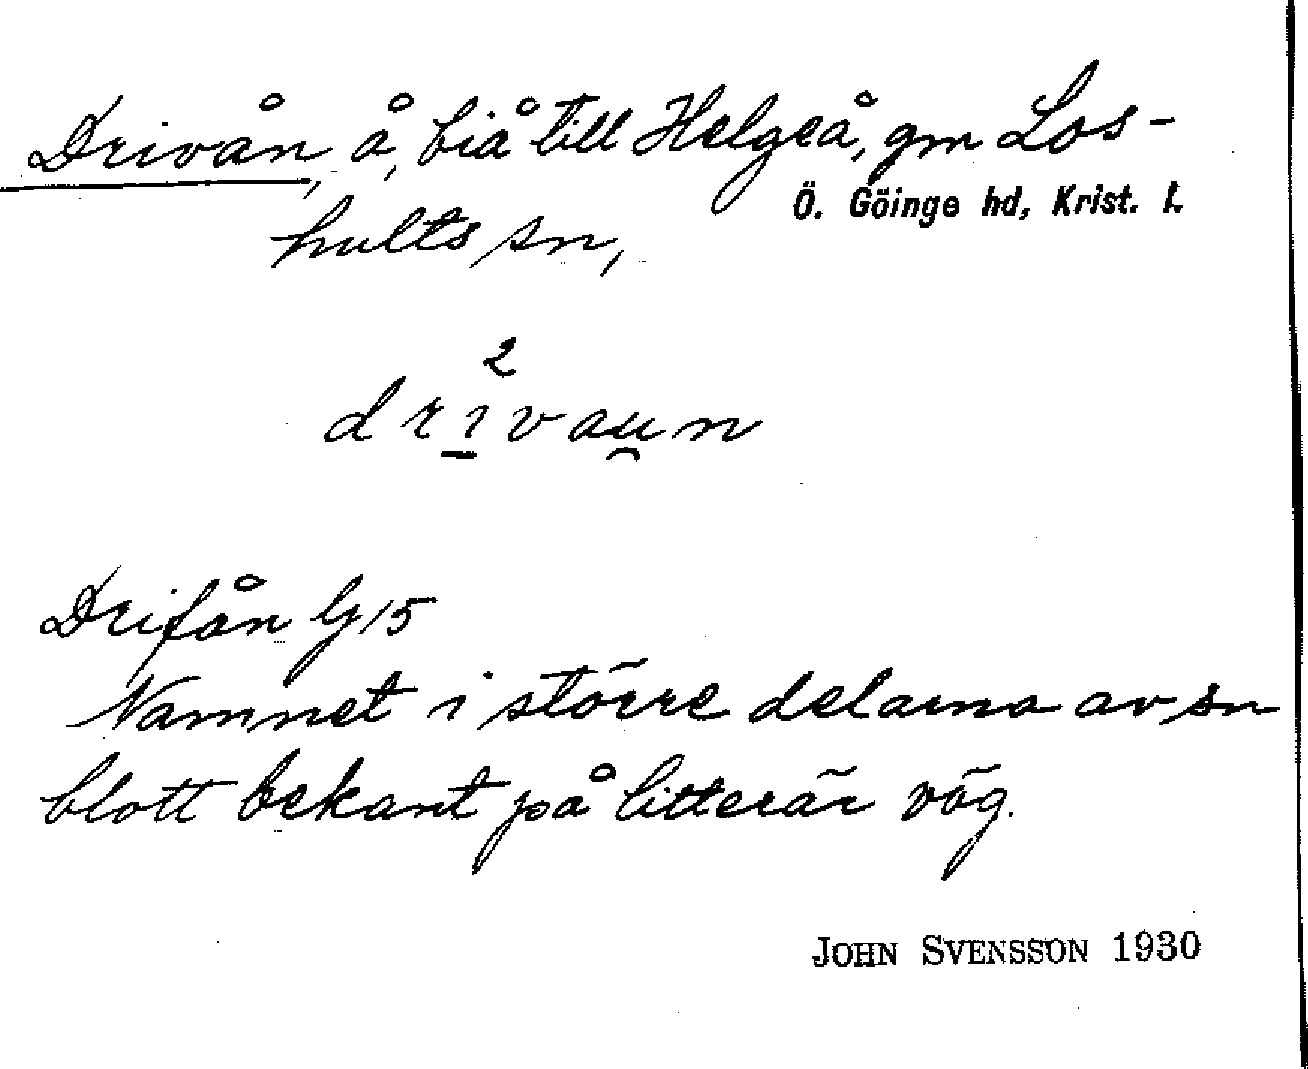 Drivån, å, biå till Helgeå, gm Los-
Ö. Göinge hd, Krist. l.
hults sn,
2
drivau̯n
Drifån G 15
Namnet i större delarna av sn
blott bekant på litterär väg.
JOHN SVENSSON 1930